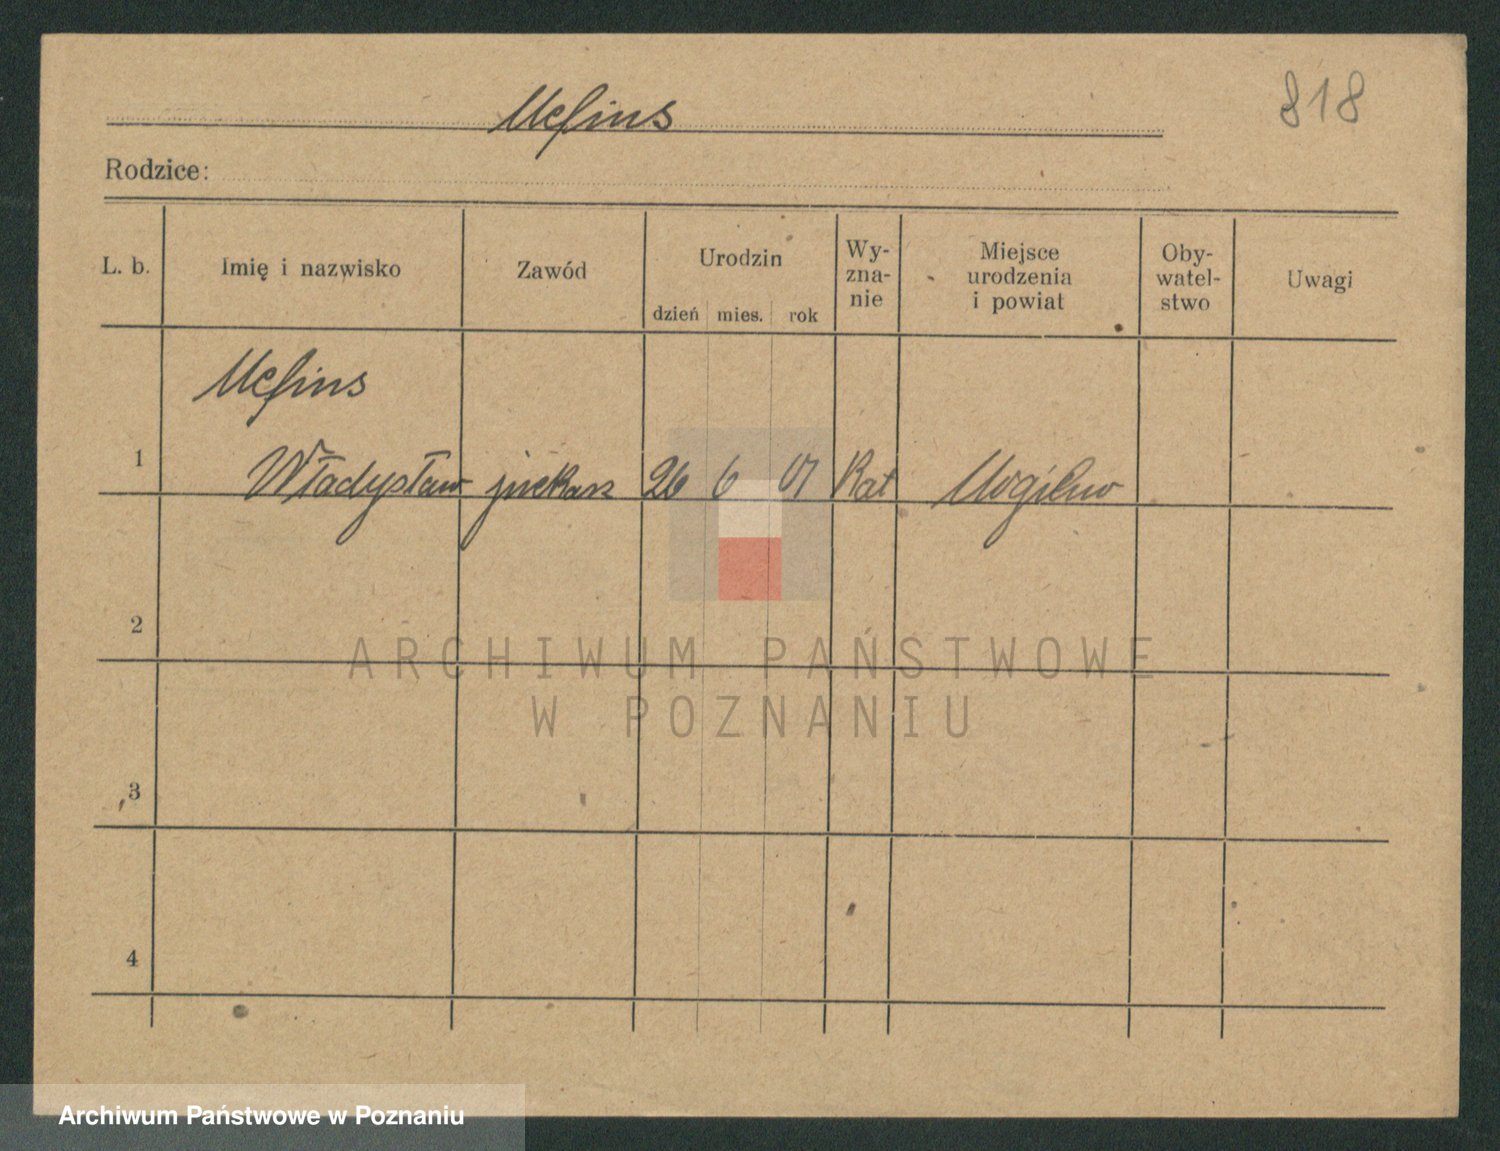 818
Rodzice:
L. b.
Imię i nazwisko
Zawód
Urodzin
dzień mies. rok
Wy-
zna-
nie
Miejsce
urodzenia
i powiat
Oby-
watel-
stwo
Uwagi
1 Władysław piekarz 26 6 01 Kat Mogilno
2
3
4
ARCHIWUM PAŃSTWOWE
W POZNANIU
Archiwum Państwowe w Poznaniu